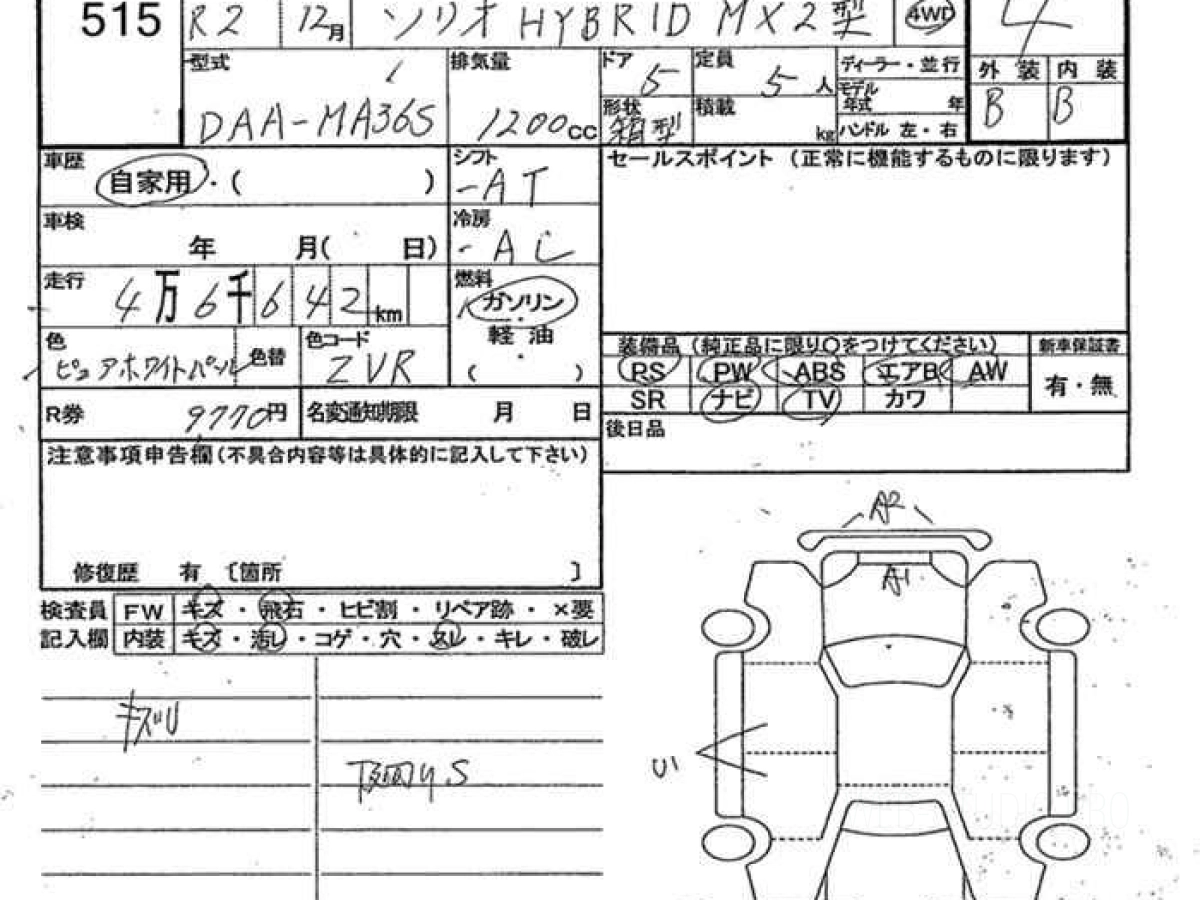 515 R2 12月 ソリオ HYBRID MX 2型 4WD 4
型式 DAA-MA36S 排気量 1200cc ドア 5 定員 5人 ディーラー・並行 外装 内装
形状 箱型 積載 kg モデル年式 年 B B
ハンドル 左・右
車歴 自家用・( ) シフト -AT セールスポイント (正常に機能するものに限ります)
車検 年 月( 日) 冷房 -AC
走行 4万6千642km 燃料 ガソリン
軽油
( )
色 ピュアホワイトパール 色替 色コード ZVR
装備品 (純正品に限り○をつけてください) 新車保証書
PS PW ABS エアB AW 有・無
SR ナビ TV カワ
R券 9770円 名変通知期限 月 日 後日品
注意事項申告欄(不具合内容等は具体的に記入して下さい)
修復歴 有 〔箇所 〕
検査員 FW キズ・飛石・ヒビ割・リペア跡・×要
記入欄 内装 キズ・汚し・コゲ・穴・スレ・キレ・破レ
キズU
下回りS
A2
A1
U1